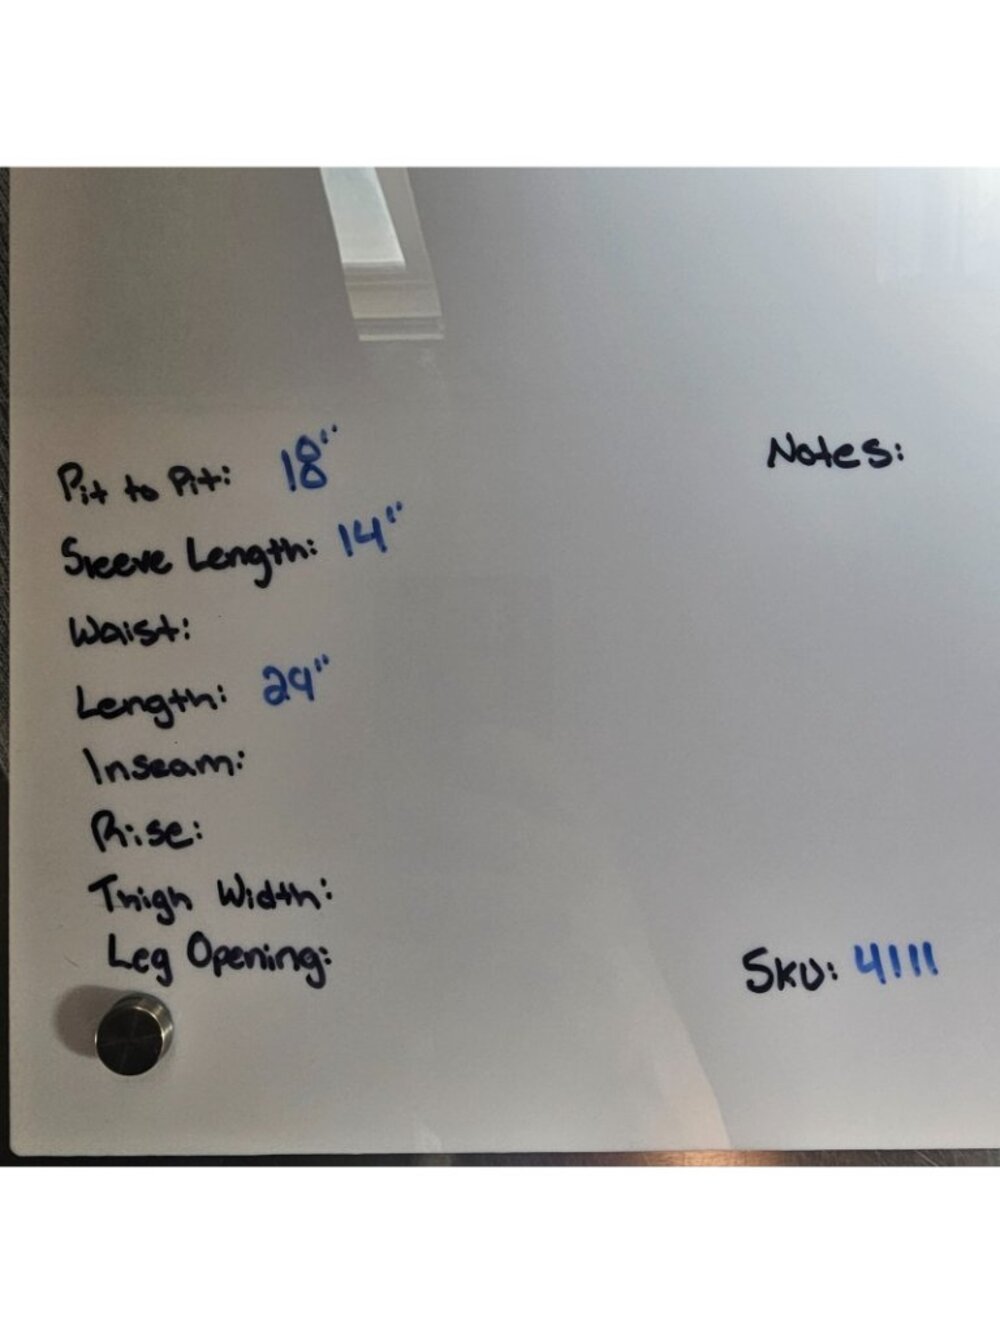 Pit to Pit: 18"
Sleeve Length: 14"
Waist:
Length: 29"
Inseam:
Rise:
Thigh Width:
Leg Opening:
Notes:
SKU: 4111